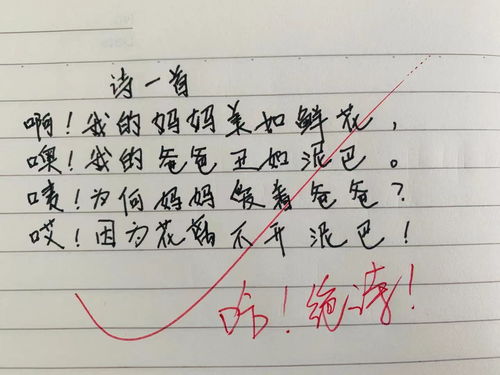 诗一首
啊！我的妈妈美如鲜花，
噢！我的爸爸丑如泥巴。
咦！为何妈妈着爸爸？
哎！因为花離不开泥巴！
哈！绝诗！